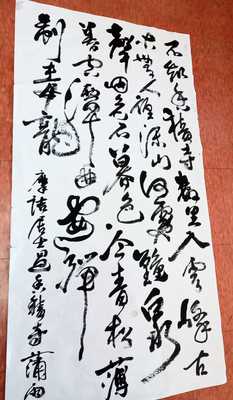 不知香積寺數里入雲峰古
木無人徑深山何處鐘泉
聲咽危石色冷青松薄
暮空潭曲安禪
制毒龍
摩詰居士過香積寺蒲雨